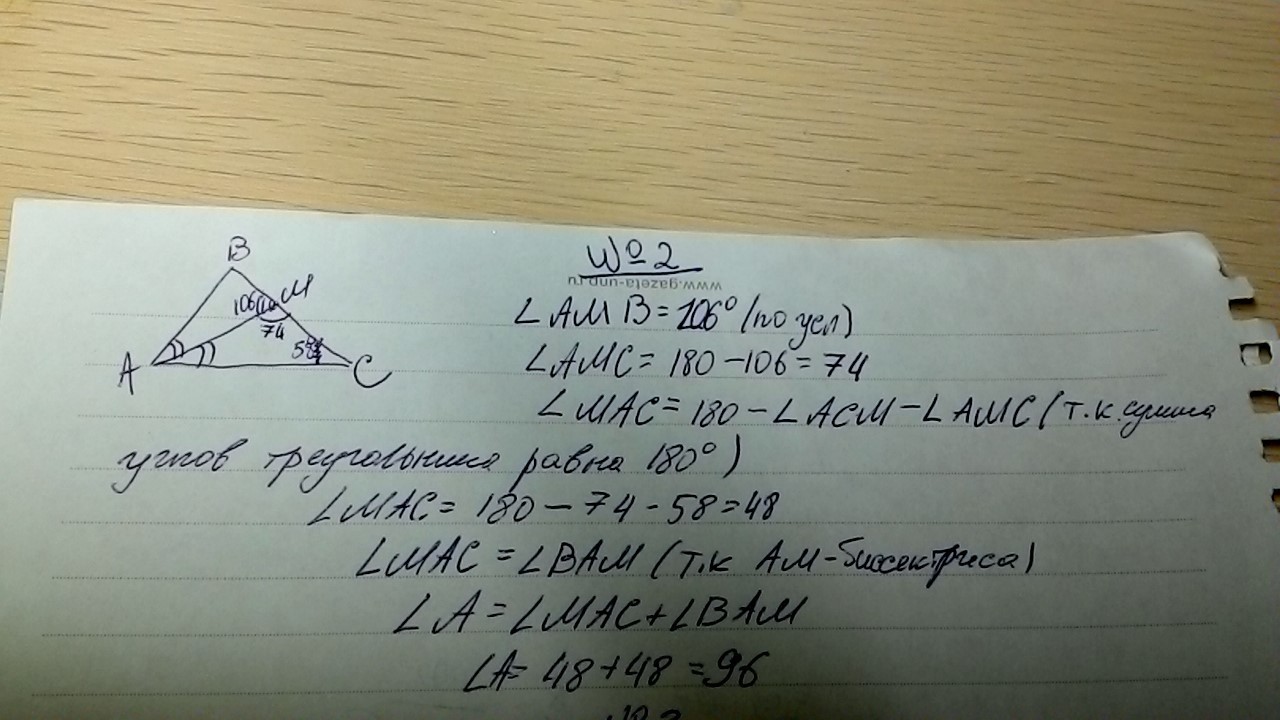 № 2
www.gazeta-unp.ru
B
106 M
74
58
A C
∠AMB = 106° (по усл)
∠AMC = 180 - 106 = 74
∠MAC = 180 - ∠ACM - ∠AMC (т.к. сумма
углов треугольника равна 180°)
∠MAC = 180 - 74 - 58 = 48
∠MAC = ∠BAM (т.к AM - биссектриса)
∠A = ∠MAC + ∠BAM
∠A = 48 + 48 = 96